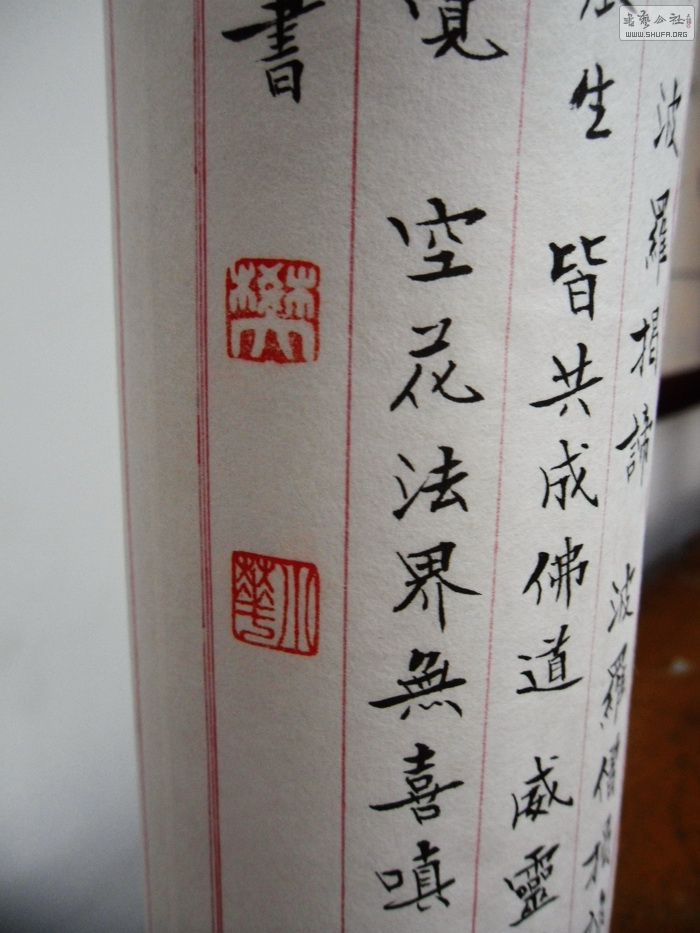 波羅揭諦 波羅僧揭
生 皆共成佛道 威靈
覓 空花法界無喜嗔
書
小華
书艺公社
WWW.SHUFA.ORG